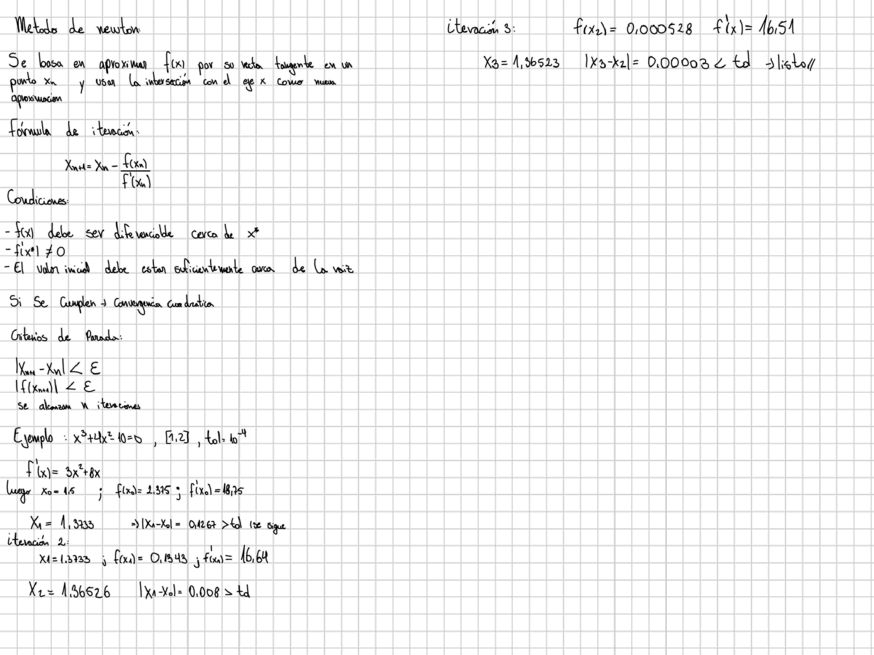 Metodo de newton
Se basa en aproximar f(x) por su recta tangente en un
punto xn y usar la interseción con el eje x como nueva
aproximación
fórmula de iteración:
Xn+1 = Xn - f(xn)/f'(xn)
Condiciones:
- f(x) debe ser diferenciable cerca de x*
- f'(x*) ≠ 0
- El valor inicial debe estar suficientemente cerca de la raiz
Si se cumplen → convergencia cuadratica
Criterios de Parada:
|Xn+1 - Xn| < ε
|f(xn+1)| < ε
se alcanzan n iteraciones
Ejemplo : x³+4x²-10=0 , [1,2] , tol=10⁻⁴
f'(x)= 3x²+8x
luego x0=1.5 ; f(x0)= 2.375 ; f'(x0)=18,75
X1 = 1,3733 ⇒ |X1-X0| = 0,1267 > tol se sigue
iteración 2:
X1=1.3733 ; f(x1)= 0,1343 ; f'(x1)= 16,64
X2 = 1.36526 |X1-X0|= 0.008 > tol
iteración 3: f(x2)= 0,000528 f'(x)= 16,51
X3=1,36523 |X3-X2|= 0.00003 < tol → listo//